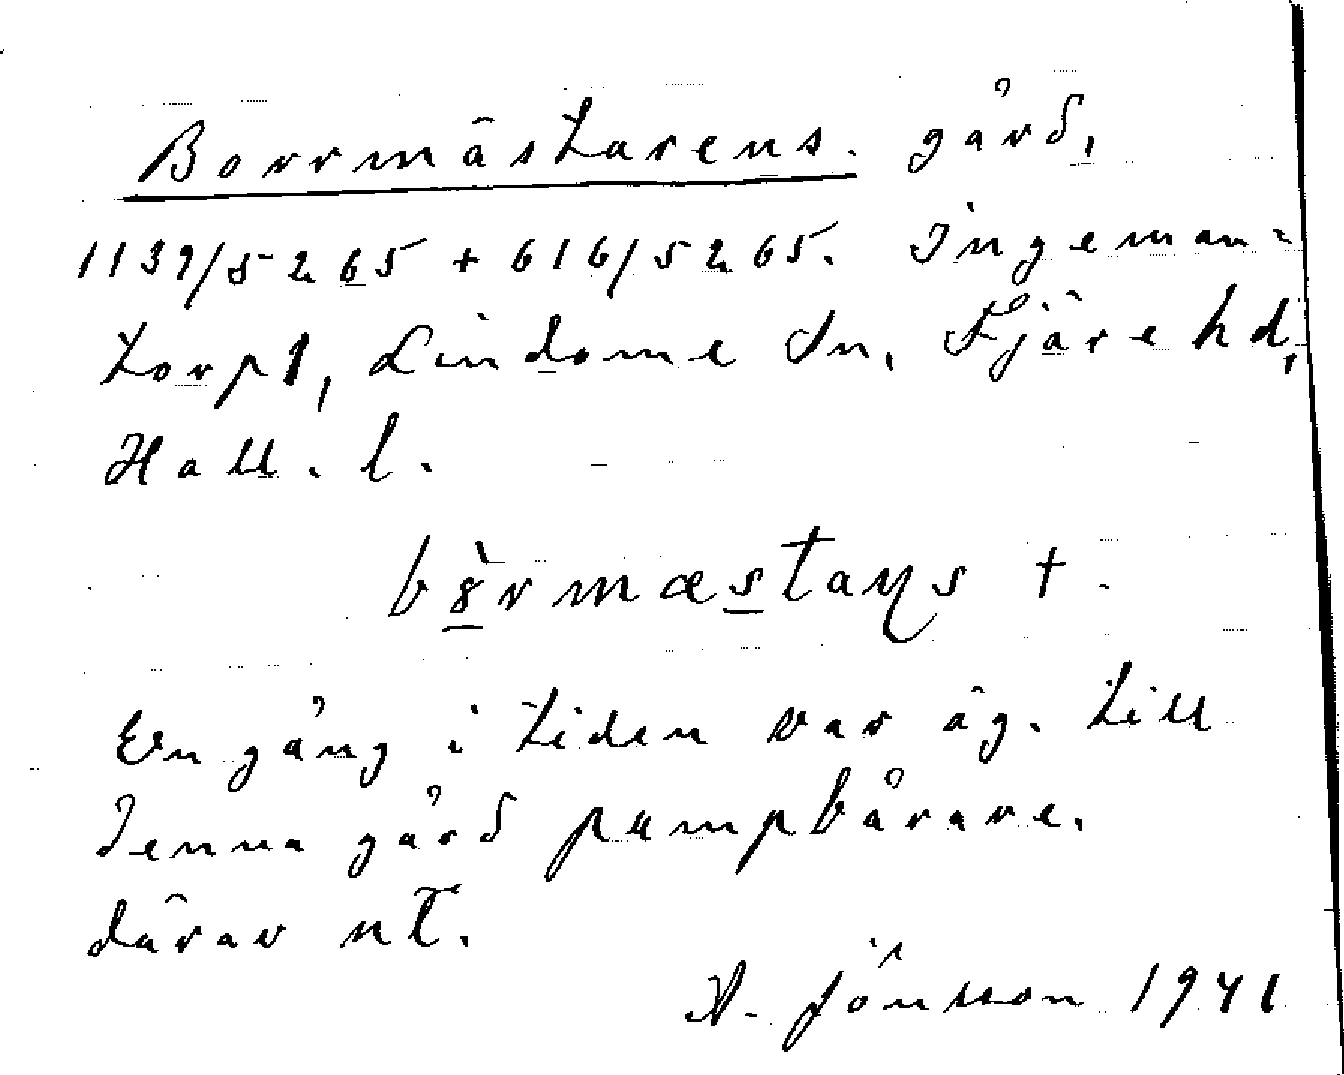 Borrmästarens. gård,
1139/5265 + 616/5265. Ingeman=
torp 1, Lindome sn, Fjäre hd,
Hall. l.
En gång i tiden var äg. till
denna gård pumpbårare.
därav nt.
A. Jönsson 1941